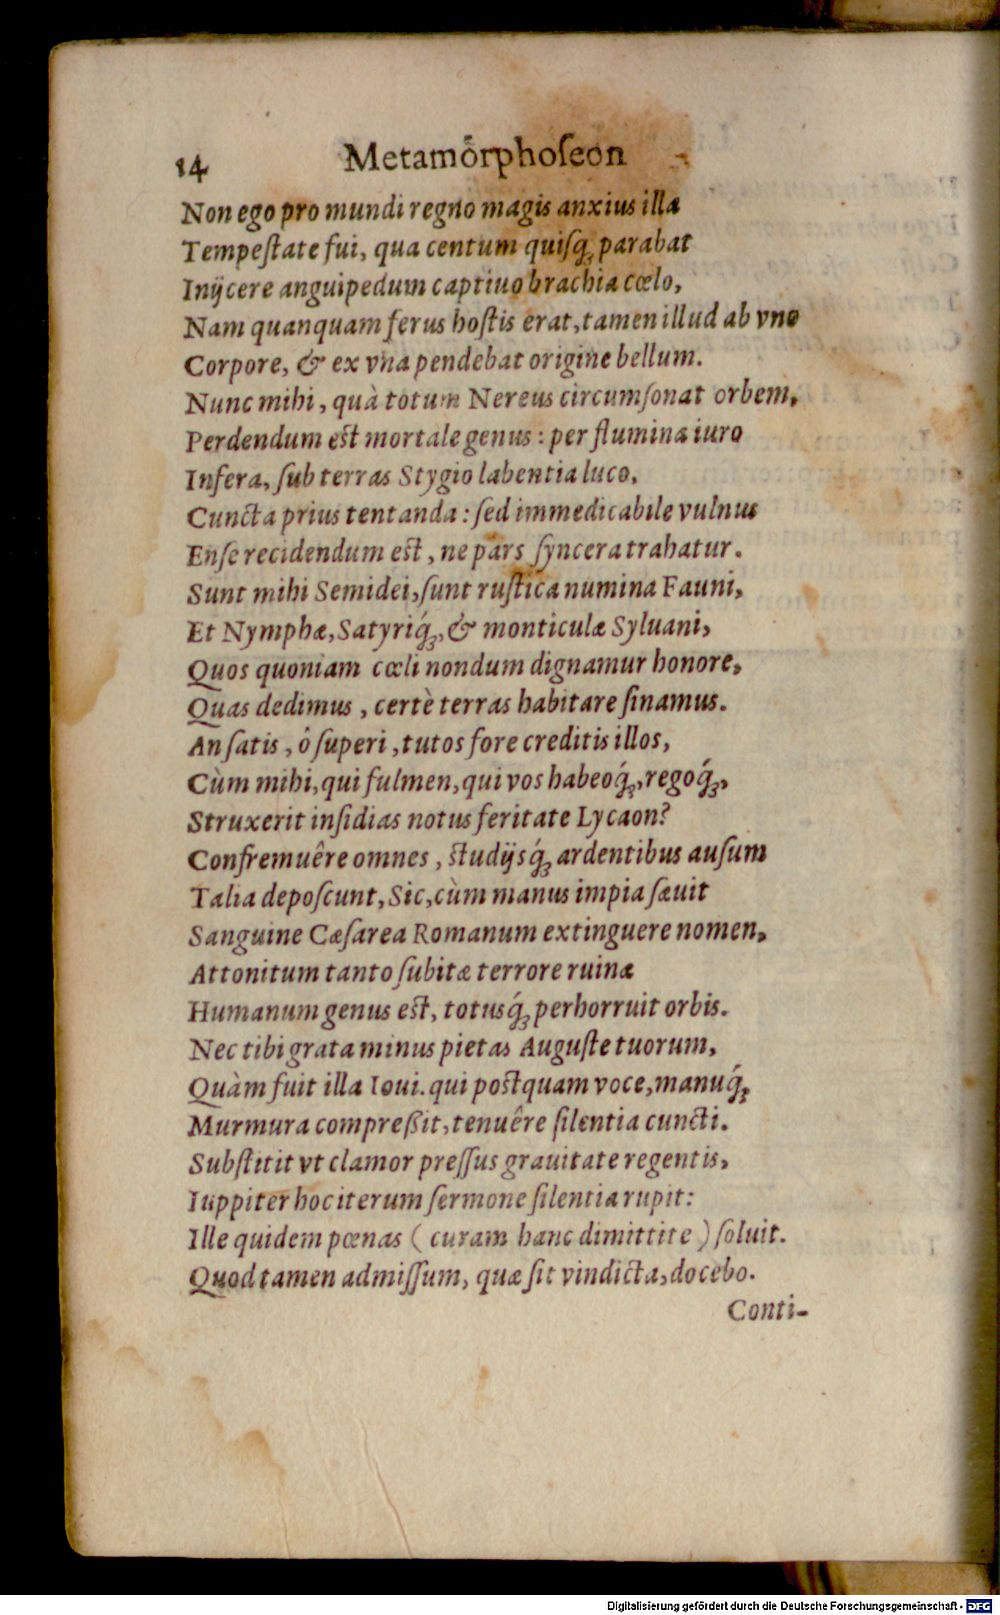 14 Metamorphoſeon
Non ego pro mundi regno magis anxius illæ
Tempeſtate fui, qua centum quiſq́; parabat
Inijcere anguipedum captiuo brachia cœlo,
Nam quanquam ferus hoſtis erat, tamen illud ab vno
Corpore, & ex vna pendebat origine bellum.
Nunc mihi, quà totum Nereus circumſonat orbem,
Perdendum eſt mortale genus: per flumina iuro
Infera, ſub terras Stygio labentia luco,
Cuncta prius tentanda: ſed immedicabile vulnus
Enſe recidendum eſt, ne pars ſyncera trahatur.
Sunt mihi Semidei, ſunt ruſtica numina Fauni,
Et Nymphæ, Satyriq́;, & monticulæ Syluani,
Quos quoniam cœli nondum dignamur honore,
Quas dedimus, certè terras habitare ſinamus.
An ſatis, ô ſuperi, tutos fore creditis illos,
Cùm mihi, qui fulmen, qui vos habeoq́;, regoq́;,
Struxerit inſidias notus feritate Lycaon?
Confremuêre omnes, ſtudijsq́; ardentibus auſum
Talia depoſcunt, Sic, cùm manus impia ſæuit
Sanguine Cæſarea Romanum extinguere nomen,
Attonitum tanto ſubitæ terrore ruinæ
Humanum genus eſt, totusq́; perhorruit orbis.
Nec tibi grata minus pietas Auguſte tuorum,
Quàm fuit illa Ioui. qui poſtquam voce, manuq́;
Murmura compreßit, tenuêre ſilentia cuncti.
Subſtitit vt clamor preſſus grauitate regentis,
Iuppiter hoc iterum ſermone ſilentia rupit:
Ille quidem pœnas (curam hanc dimittite) ſoluit.
Quod tamen admiſſum, quæ ſit vindicta, docebo.
Conti-
Digitalisierung gefördert durch die Deutsche Forschungsgemeinschaft - DFG